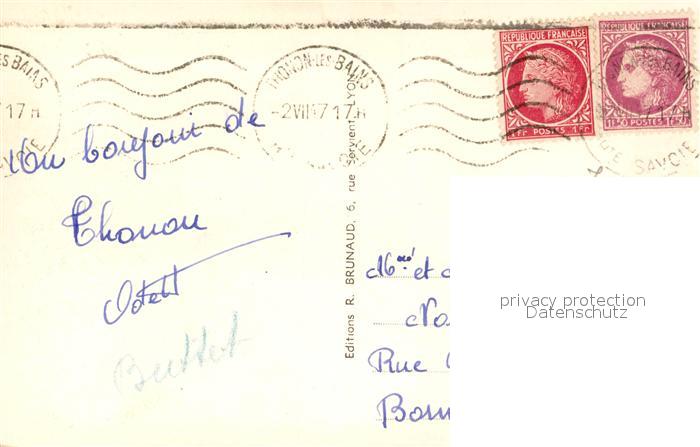 LES BAINS
17 H
THONON-LES-BAINS
-2 VII 47 17 H
REPUBLIQUE FRANÇAISE
1 FR POSTES 1 FR
REPUBLIQUE FRANÇAISE
1F50 POSTES 1F50
SAVOIE
Un bonjour de
Thonon
Odett
Buttet
Editions R. BRUNAUD, 6, rue Servient LYON
et
Rue
privacy protection
Datenschutz